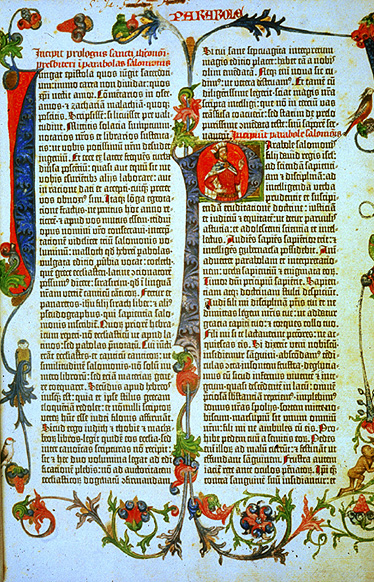 PARABOLE
Incipit prologus sancti iheronimi
presbiteri i parabolas salomonis
Iungat epistola quos iungit sacerdo-
tium: immo carta non dividat: quos
xpi nectit amor. Cōmētarios in osee.
amos. et zachariā malachiā quoq;
poscitis. Scripsissē: si licuisset pre vali-
tudine. Mittitis solacia sumptuum.
notarios nr̄os et librarios sustenta-
tis: ut vobis potissimū nr̄m desudet
ingeniū. Et ecce ex latere frequēs turba
diversa poscētiū: quasi aut equū sit me
vobis esurientibus alijs laborare: aut
in ratione dati et accepti. cuiq; preter
vos obnoxi⁹ sim. Itaq; lōga egrota-
tione fractus. ne penitus hoc anno re-
ticerē. et apud vos mutus essem. tridui
opus nomini vr̄o consecravi. interp-
tationē videlicet triū salomonis vo-
luminū: masloth qd̄ hebrei pabolas.
vulgata editio pverbia vocat: coeleth.
quē grece ecclesiasten. latine cōcionatorē
possum⁹ dicere: sirasirim. qd̄ ī linguā
nr̄am vertit̄ canticū cāticor̄. Fertur et
panaretos. ihū filij sirach liber: et ali⁹
pseudographus. qui sapientia salo-
monis inscribit̄. Quor̄ priorē hebra-
icum reperi. nō ecclesiasticū ut apud la-
tinos: sed pabolas pnotatū. Cui iūcti
erāt ecclesiastes et canticū canticor̄: ut
similitudinē salomonis. nō solū nu-
mero librorū: sed etiā materiar̄ gene-
re coequaret. Secūdus apud hebreos
nusq̄ est: quia et ipse stilus grecam
eloquētiā redolet: et nōnulli scriptorū
veterū hūc esse iudei filonis affirmāt.
Sicut ergo iudith et thobie et macha-
beor̄ libros. legit quidē eos ecclesia. sed
inter canonicas scripturas nō recipit:
sic et hec duo volumina legat ad edi-
ficationē plebis: nō ad auctoritatem
ecclesiasticor̄ dogmatū cōfirmandam.
Si cui sane septuaginta interpretum
magis editio placet: habet eā a nobis
olim emēdatā. Neq; em̄ nova sic cu-
dim⁹: ut vetera destruam⁹. Et tamē cū
diligentissime legerit. sciat magis nr̄a
scripta intelligi: que nō in terciū vas
trāsfusa coacuerint: sed statim de prelo
purissime cōmēdata teste: suū saporē ser-
vaverint.
Incipiūt parabole salomonis
Parabole salomonis
filij david regis isrl̄:
ad sciendā sapienti-
am et disciplinā: ad
intelligendā verba
prudentie: et suscipi-
endā eruditionē doctrine: iustitiā
et iudiciū et equitatē: ut detur parvulis
astutia: et adolescenti scientia et intel-
lectus. Audiēs sapiēs sapiētior erit: et
intelligēs gubernacula possidebit. Ani-
advertet parabolam et interpretatio-
nem: verba sapientiū et enigmata eor̄.
Timor dn̄i principiū sapiētie. Sapien-
tiam atq; doctrinam stulti despiciūt.
Audi fili mi disciplinā pr̄is tui et ne
dimittas legem mr̄is tue: ut addatur
gracia capiti tuo: et torques collo tuo.
Fili mi si te lactaverint pctōres: ne ac-
quiescas eis. Si dixerit veni nobiscū.
insidiemur sāguini. abscōdam⁹ tedi-
culas cōtra insontem frustra. deglutia-
mus eū sicud infernus viventē et inte-
grum. quasi descēdentē in lacū: omnē
preciosā substātiā reperiem⁹. implebim⁹
domus nr̄as spolijs. sortem mitte no-
biscum. marsupiū sit unum omniū
nr̄m: fili mi ne ambules cū eis. Pro-
hibe pedem tuū a semitis eor̄. Pedes
em̄ illor̄ ad malū currūt: et festināt ut
effundant sanguinem. Frustra autem
iacit̄ rete ante oculos pēnator̄. Ipi q̄
contra sanguinē suū insidiantur: et